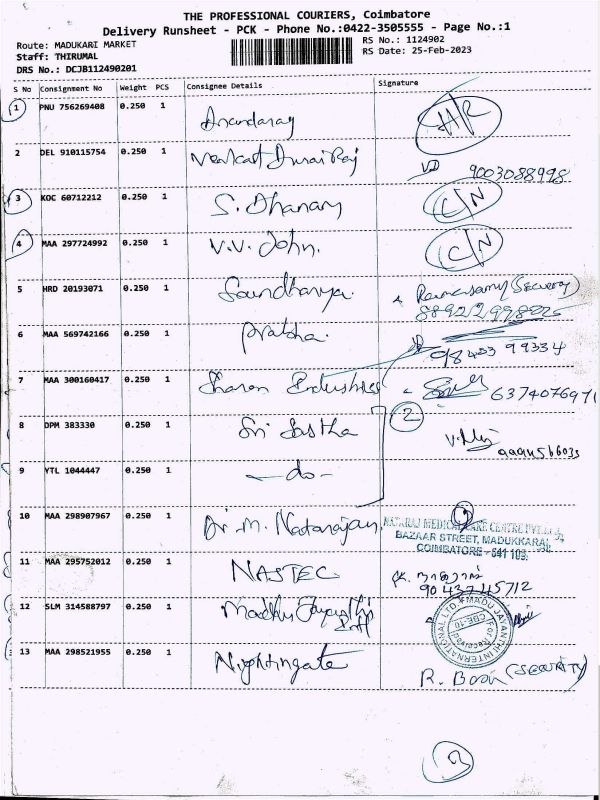 THE PROFESSIONAL COURIERS, Coimbatore
Delivery Runsheet - PCK - Phone No.:0422-3505555 - Page No.:1
Route: MADUKARI MARKET
RS No.: 1124902
Staff: THIRUMAL
RS Date: 25-Feb-2023
DRS No.: DCJB112490201
S No Consignment No Weight PCS Consignee Details Signature
1 PNU 756269408 0.250 1 Anandaraj H/R
2 DEL 910115754 0.250 1 Venkat Durai Raj 9003088998
3 KOC 60712212 0.250 1 S. Dhanam C/N
4 MAA 297724992 0.250 1 V.V. John. C/N
5 HRD 20193071 0.250 1 Soundharya. Ramasamy (Security)
6 MAA 569742166 0.250 1 Prabha. 98433 99334
7 MAA 300160417 0.250 1 Sharon Industries 6374076971
8 DPM 383330 0.250 1 Sri Sastha 2
9 YTL 1044447 0.250 1 -do-
10 MAA 298907967 0.250 1 Dr. M. Natarajan
NATARAJ MEDICAL CARE CENTRE PVT.
BAZAAR STREET, MADUKKARAI,
COIMBATORE - 641 105.
11 MAA 295752012 0.250 1 NASTEC 9043745712
12 SLM 314588797 0.250 1 Madhu Jayanthi Intl
MADU JAYANTHI INTERNATIONAL LTD.
CBE-10
13 MAA 298521955 0.250 1 Nightingate
R. Boon (SECURITY)